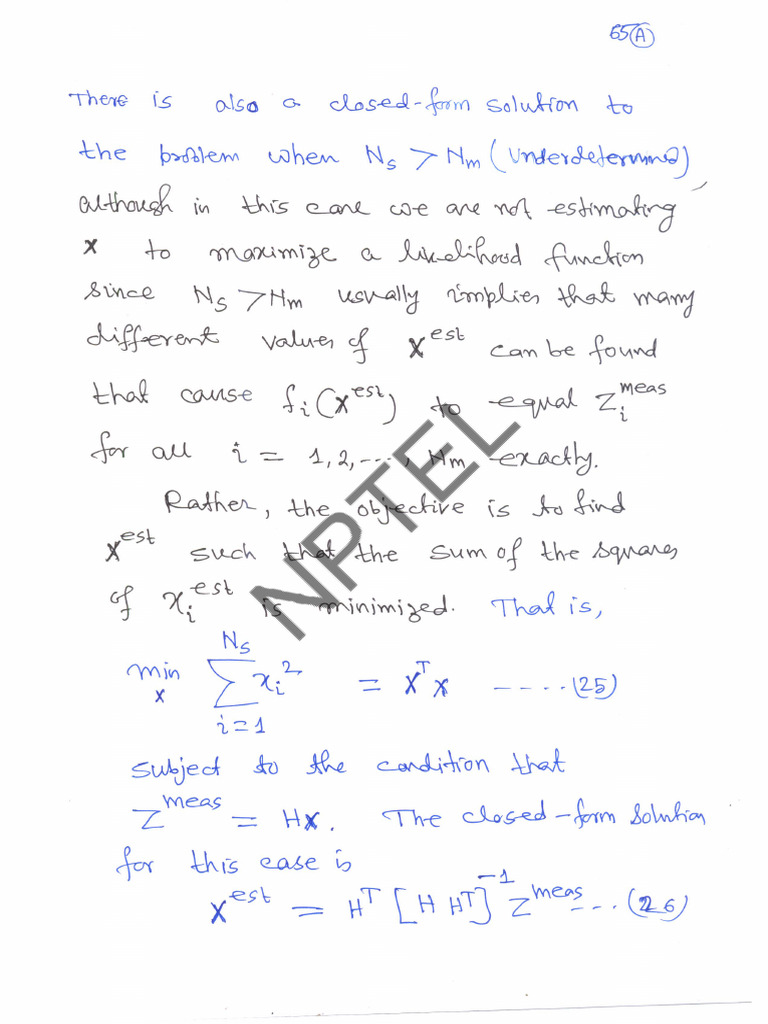 65 A
There is also a closed-form solution to
the problem when Ns > Nm (Underdetermined)
although in this case we are not estimating
x to maximize a likelihood function
since Ns > Nm usually implies that many
different values of x^est can be found
that cause f_i(x^est) to equal Z_i^meas
for all i = 1, 2, ..., Nm exactly.
Rather, the objective is to find
x^est such that the sum of the squares
of x_i^est is minimized. That is,
min_x Σ_{i=1}^{Ns} x_i^2 = x^T x ----(25)
subject to the condition that
Z^meas = Hx. The closed-form solution
for this case is
x^est = H^T [H H^T]^-1 Z^meas ...(26)
NPTEL